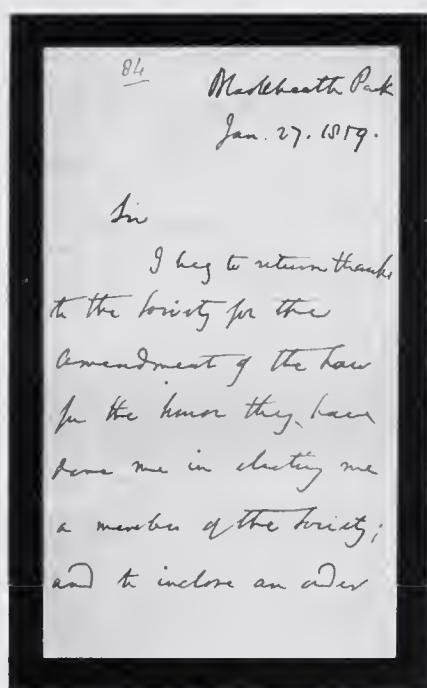 84
Blackheath Park
Jan. 27. 1859.
Sir
I beg to return thanks
to the Society for the
Amendment of the Law
for the honor they have
done me in electing me
a member of the Society;
and to inclose an order